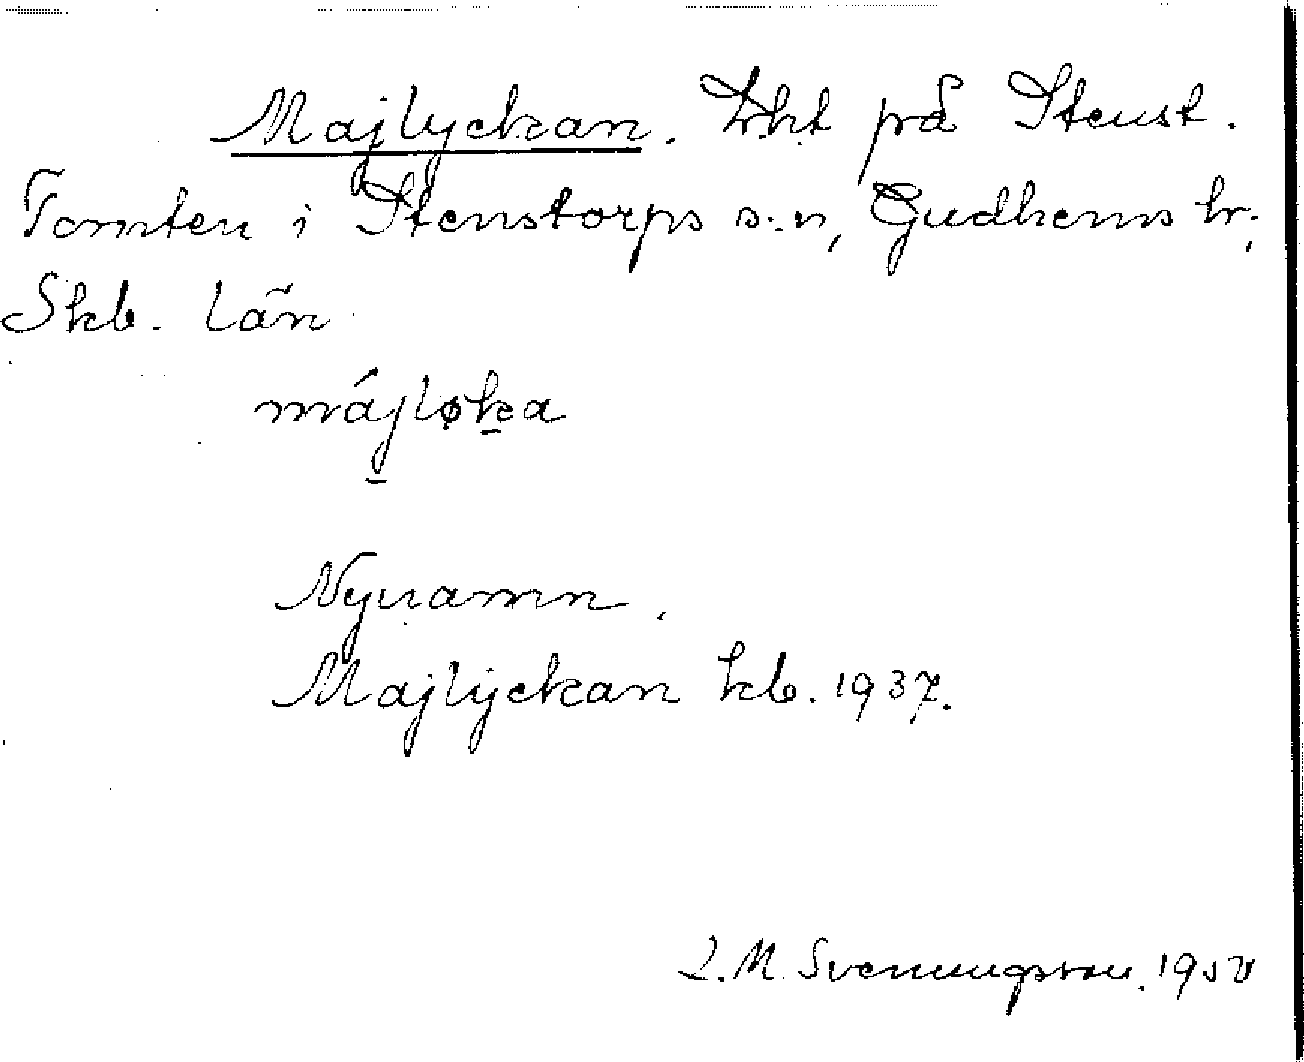 Majlyckan. Lht på Stenst.
Tomten i Stenstorps s:n, Gudhems hr,
Skb. län
májløka
Nynamn.
Majlyckan kb. 1937.
L.M. Svenungsson. 1950